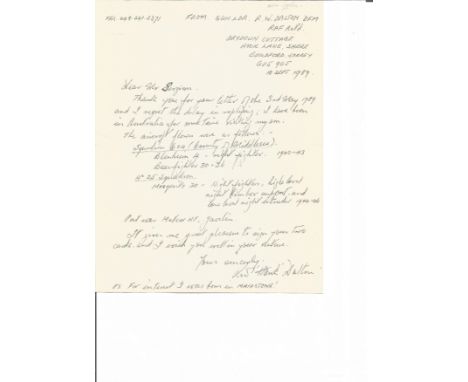 FROM SQN LDR. R.W. DALTON DFM
RAF Retd
COTTAGE
HOOK LANE, SHERE
GUILDFORD SURREY
GU5 9QS
SEPT 1989.
Dear Mr
Thank you for your letter of the 3rd May 1989
and I regret the delay in replying, I have been
in Australia for some time visiting my son.
The aircraft flown was as follows :-
Squadron 600 (County of Middlesex)
Blenheim 4 - night fighter.
Beaufighter
No 25 Squadron.
Mosquito 30 - Night fighter, high level
night bomber support, and
low level night intruder
It gives me great pleasure to sign your two
cards, and I wish you well in your
Yours sincerely
Dalton
PS. For interest I was born in MAIDSTONE!